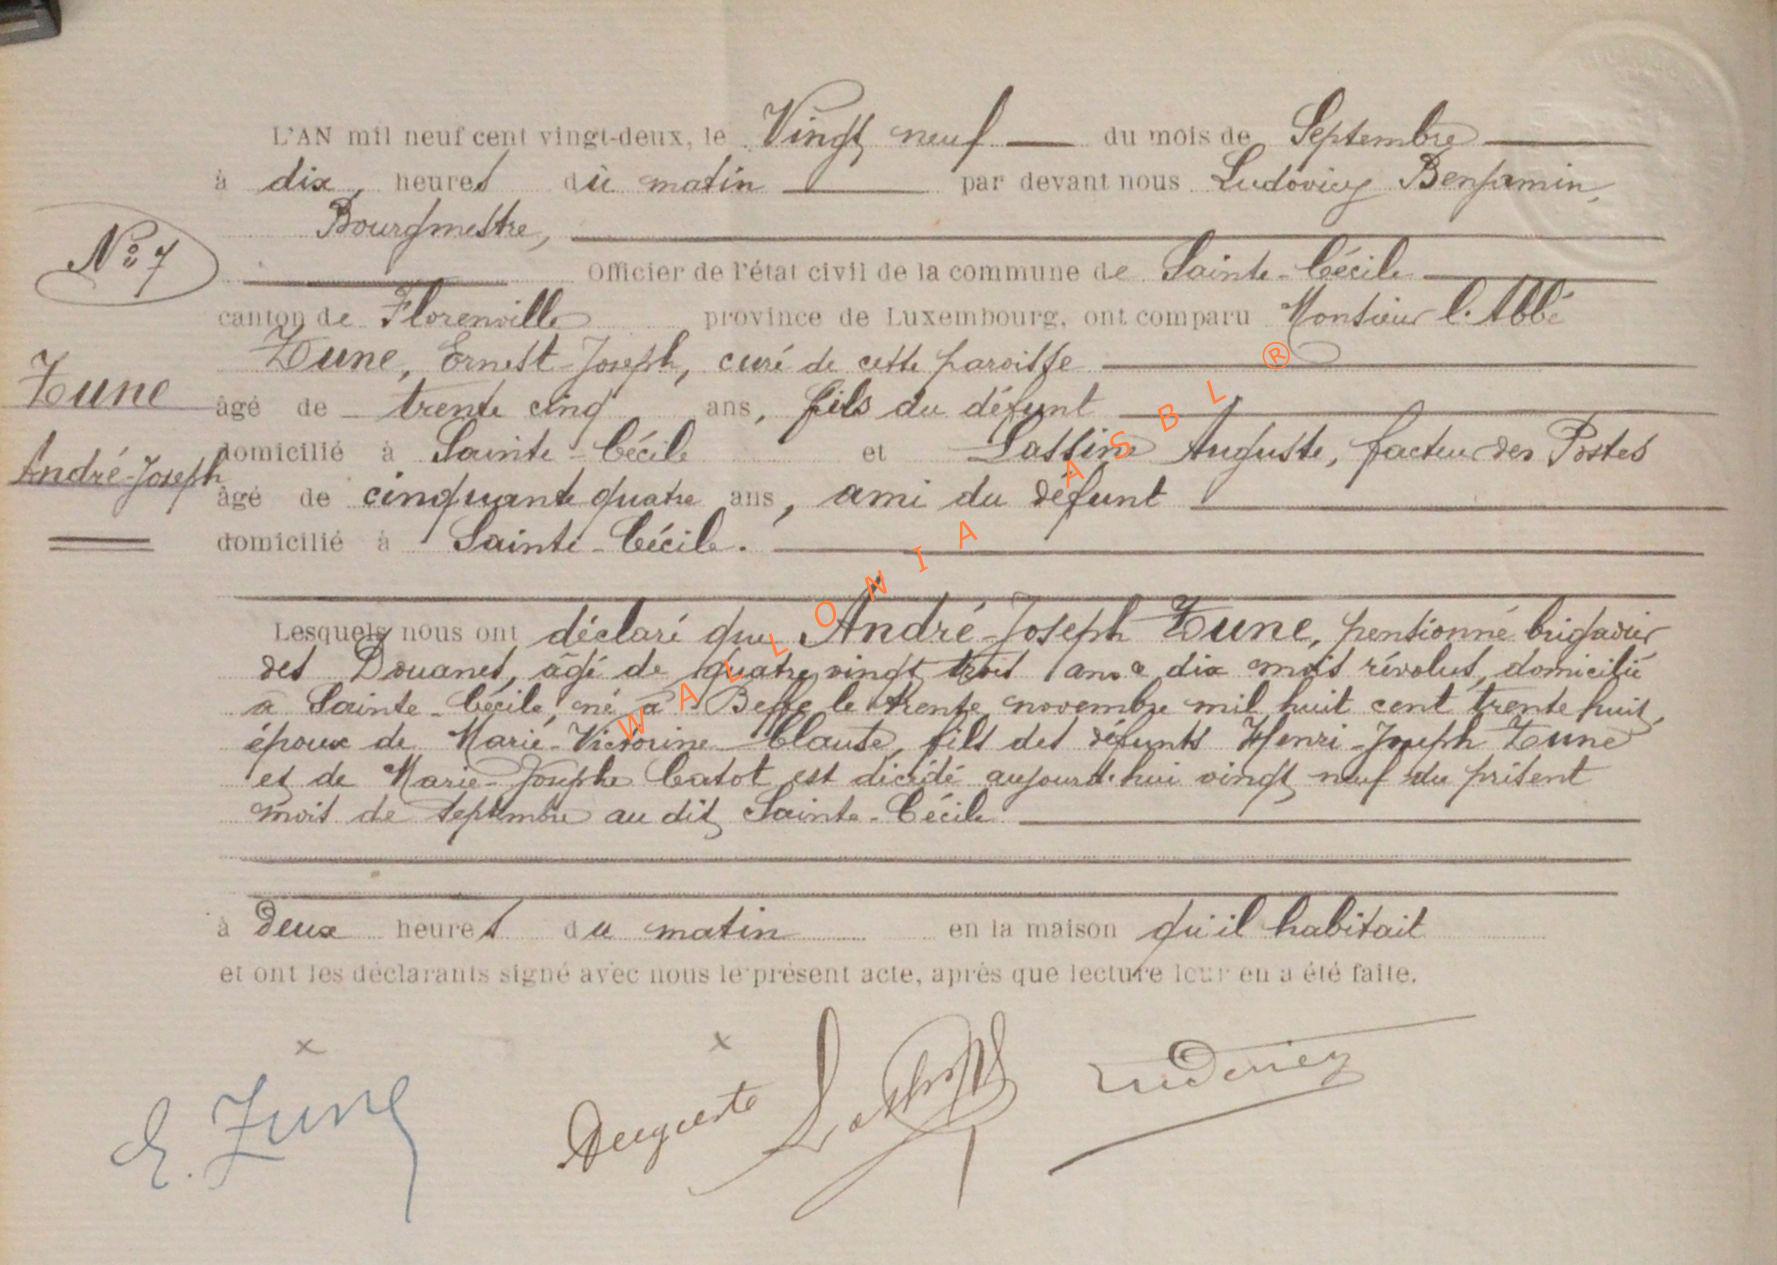 L'AN mil neuf cent vingt-deux, le Vingt neuf du mois de Septembre
à dix, heures du matin par devant nous Ludovicy Benjamin,
Bourgmestre,
N° 7
Officier de l'état civil de la commune de Sainte-Cécile
canton de Florenville province de Luxembourg, ont comparu Monsieur l'Abbé
Zune, Ernest-Joseph, curé de cette paroisse
Zune
âgé de trente cinq ans, fils du défunt
domicilié à Sainte-Cécile et Lassine Auguste, facteur des Postes
André-Joseph
âgé de cinquante quatre ans, ami du défunt
domicilié à Sainte-Cécile.
Lesquels nous ont déclaré que André-Joseph Zune, pensionné brigadier
des Douanes, âgé de quatre vingt trois ans dix mois révolus, domicilié
à Sainte-Cécile, né à Beffe le trente novembre mil huit cent trente huit,
époux de Marie-Victorine Claute, fils des défunts Henri-Joseph Zune
et de Marie-Josephe Catot est décédé aujourd'hui vingt neuf du présent
mois de septembre au dit Sainte-Cécile
à deux heures du matin en la maison qu'il habitait
et ont les déclarants signé avec nous le présent acte, après que lecture leur en a été faite.
x x
E. Zune Auguste Ludovicy
WALLONIA ASBL ®